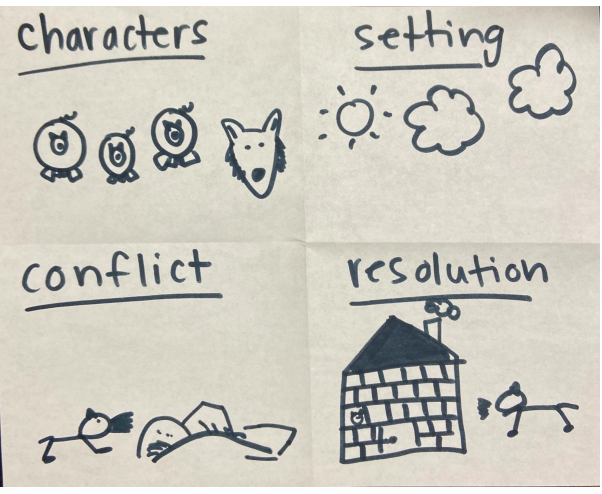 characters
setting
conflict
resolution